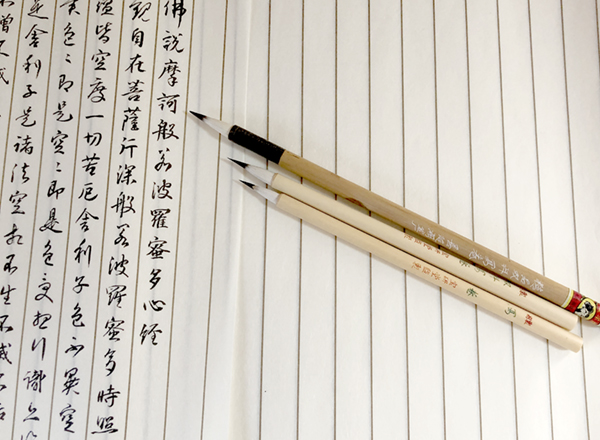 佛說摩訶般若波羅蜜多心經
觀自在菩薩行深般若波羅蜜多時照
蘊皆空度一切苦厄舍利子色不異空
異色〻即是空〻即是色受想行識亦復
是舍利子是諸法空相不生不滅不垢
不增不減